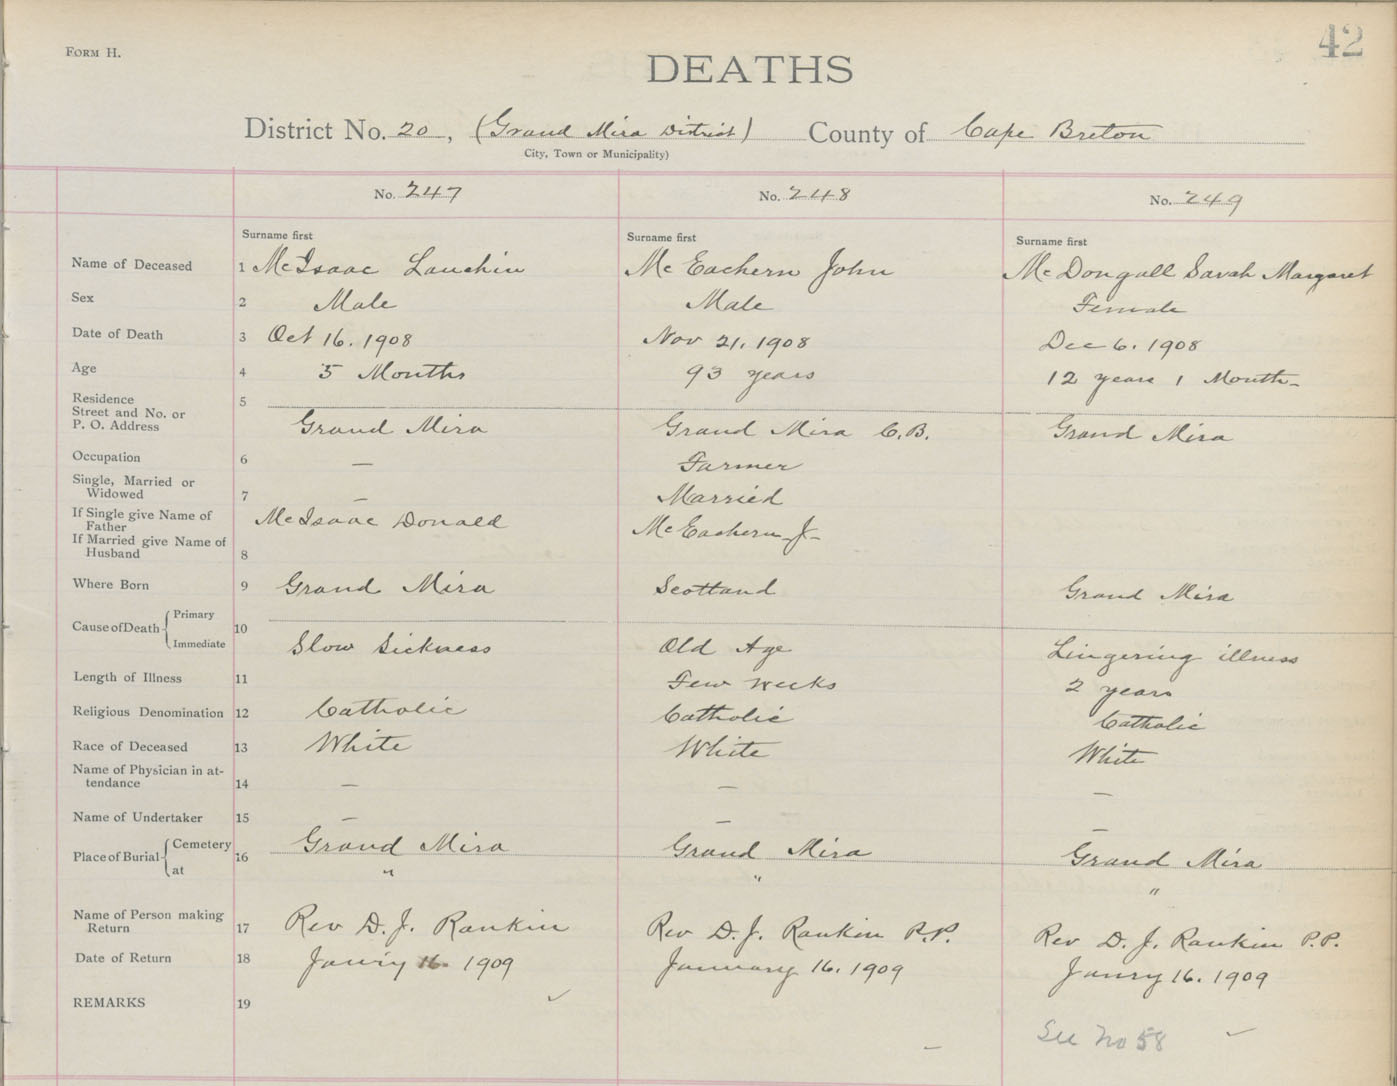 42
FORM H.
DEATHS
District No. 20, (Grand Mira District) County of Cape Breton
City, Town or Municipality)
No. 247 No. 248 No. 249
Surname first Surname first Surname first
Name of Deceased 1 McIsaac Lauchin McEachern John McDougall Sarah Margaret
Sex 2 Male Male Female
Date of Death 3 Oct 16. 1908 Nov 21. 1908 Dec 6. 1908
Age 4 5 Months 93 years 12 years 1 Month
Residence
Street and No. or
P. O. Address 5 Grand Mira Grand Mira C.B. Grand Mira
Occupation 6 — Farmer
Single, Married or
Widowed 7 — Married
If Single give Name of
Father McIsaac Donald McEachern J
If Married give Name of
Husband 8
Where Born 9 Grand Mira Scotland Grand Mira
Cause of Death { Primary
10
Immediate Slow Sickness Old Age Lingering illness
Length of Illness 11 Few weeks 2 years
Religious Denomination 12 Catholic Catholic Catholic
Race of Deceased 13 White White White
Name of Physician in at-
tendance 14 — — —
Name of Undertaker 15 — — —
Place of Burial { Cemetery 16 Grand Mira Grand Mira Grand Mira
at " " "
Name of Person making
Return 17 Rev D. J. Rankin Rev D. J. Rankin P.P. Rev D. J. Rankin P.P.
Date of Return 18 Janry 16. 1909 January 16. 1909 Janry 16. 1909
REMARKS 19
See No 58